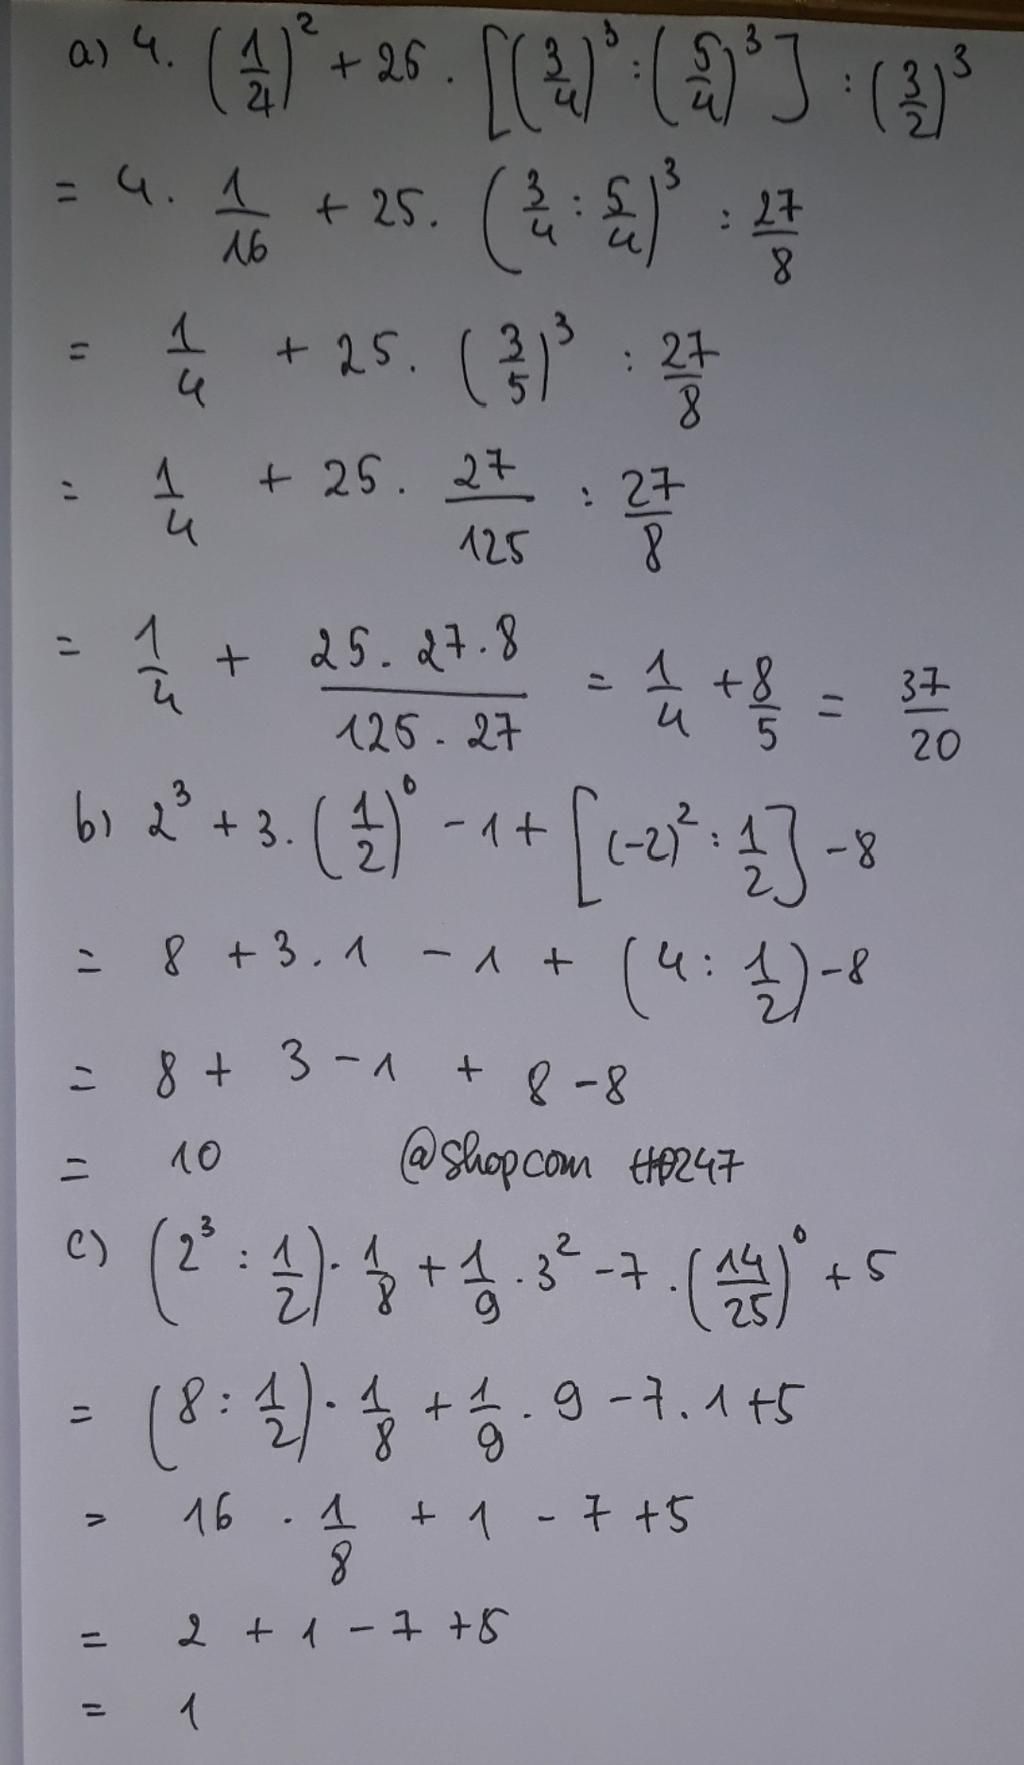 a) 4. (1/4)² + 25 . [(3/4)³ : (5/4)³] : (3/2)³
= 4. 1/16 + 25. (3/4 : 5/4)³ : 27/8
= 1/4 + 25. (3/5)³ : 27/8
= 1/4 + 25. 27/125 : 27/8
= 1/4 + 25. 27.8/125. 27 = 1/4 + 8/5 = 37/20
b) 2³ + 3. (1/2)⁰ - 1 + [(-2)² : 1/2] - 8
= 8 + 3. 1 - 1 + (4 : 1/2) - 8
= 8 + 3 - 1 + 8 - 8
= 10 @shopcom HĐ247
c) (2³ : 1/2) . 1/8 + 1/9 . 3² - 7 . (14/25)⁰ + 5
= (8 : 1/2) . 1/8 + 1/9 . 9 - 7. 1 + 5
= 16 . 1/8 + 1 - 7 + 5
= 2 + 1 - 7 + 5
= 1